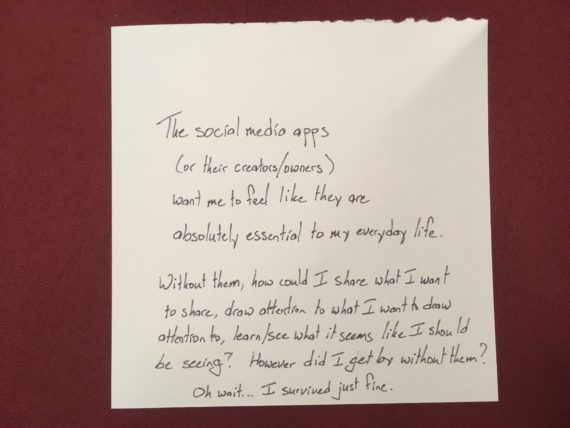 The social media apps
(or their creators/owners)
want me to feel like they are
absolutely essential to my everyday life.
Without them, how could I share what I want
to share, draw attention to what I want to draw
attention to, learn/see what it seems like I should
be seeing? However did I get by without them?
Oh wait... I survived just fine.